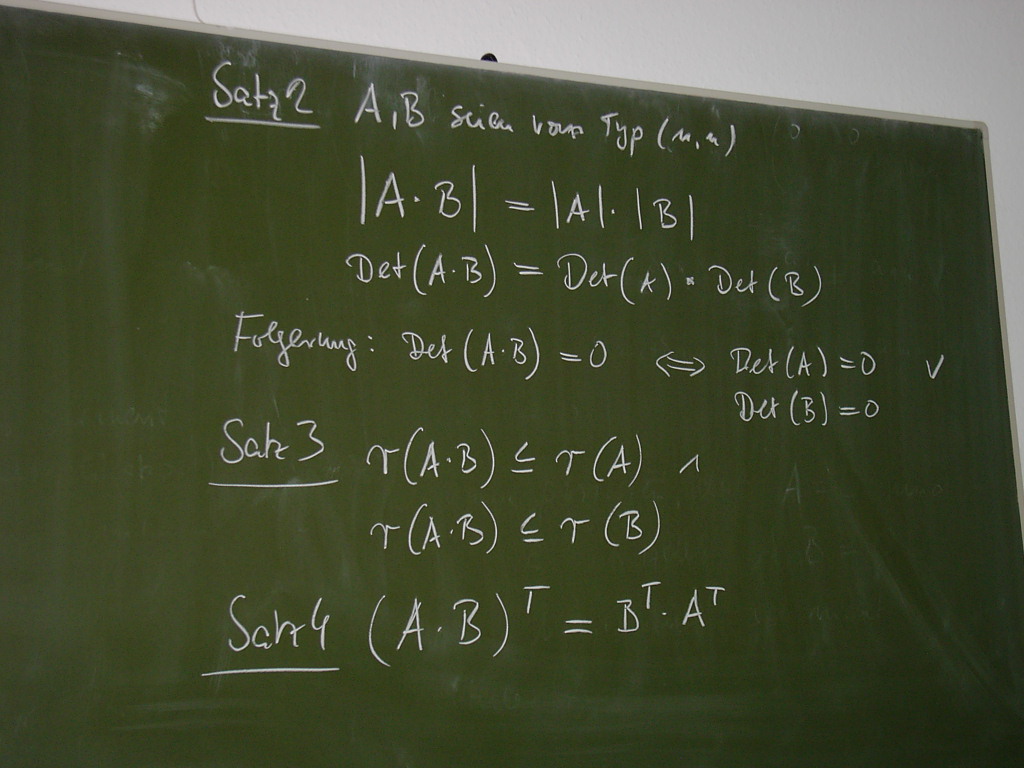 Satz 2 A, B seien vom Typ (n,n)
|A · B| = |A| · |B|
Det(A·B) = Det(A) · Det(B)
Folgerung: Det(A·B) = 0 ⇔ Det(A) = 0 ∨
Det(B) = 0
Satz 3 r(A·B) ≤ r(A) ∧
r(A·B) ≤ r(B)
Satz 4 (A·B)^T = B^T · A^T